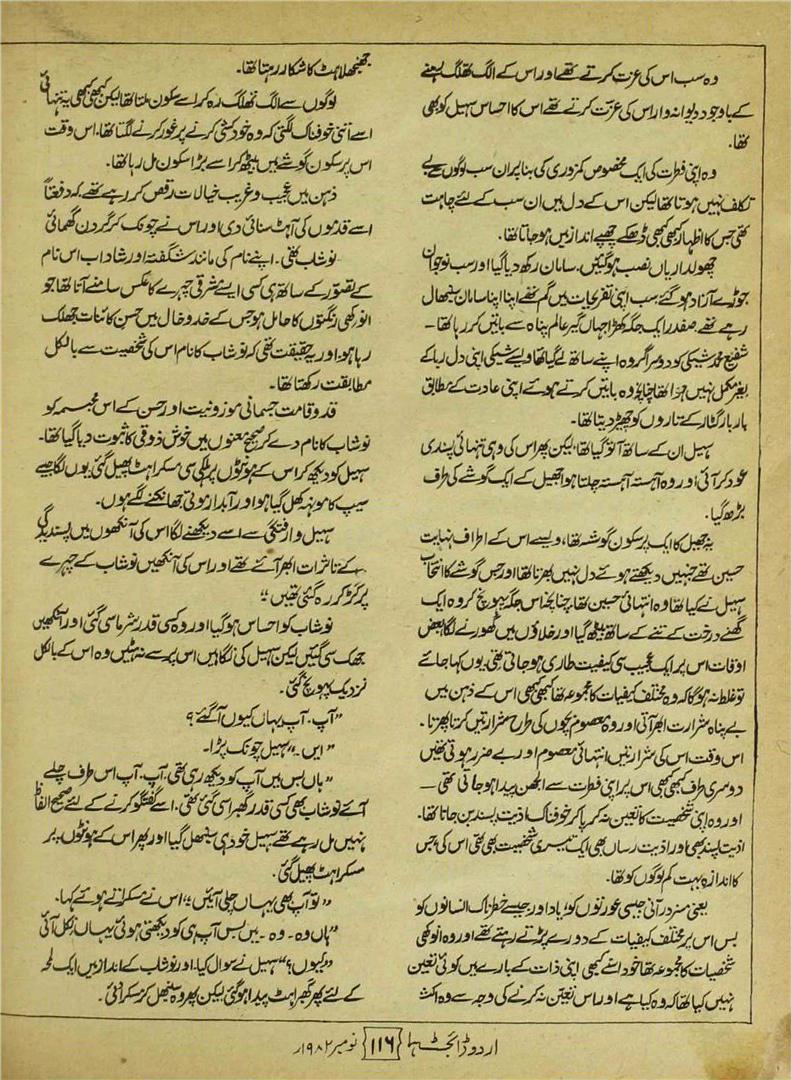 وہ سب اس کی عزت کرتے تھے اور اس کے الگ تھلگ رہنے
کے باوجود دیوانہ وار اس کی عزت کرتے تھے اس کا احساس سہیل کو بھی
تھا۔
وہ اپنی فطرت کی ایک مخصوص کمزوری کی بنا پر ان سب لوگوں سے بے
تکلف نہیں ہوتا تھا لیکن اس کے دل میں ان سب کے لئے چاہت
تھی جس کا اظہار کبھی کبھی ڈھکے چھپے انداز میں ہو جاتا تھا۔
چھولداریاں نصب ہو گئیں۔ سامان رکھ دیا گیا اور سب نوجوان
جوڑے آزاد ہو گئے سب اپنی تفریحات میں گم تھے اپنا اپنا سامان سنبھال
رہے تھے۔ صفدر ایک جگہ کھڑا جہاں گیر عالم پناہ سے باتیں کر رہا تھا۔
شفیع محمد شیکی کو دوسرا گروہ اپنے ساتھ لے گیا تھا ویسے شیکی اپنی دل ربا کے
بغیر مکمل نہیں ہوتا تھا چنانچہ وہ باتیں کرتے ہوئے اپنی عادت کے مطابق
بار بار گٹار کے تاروں کو چھیڑ دیتا تھا۔
سہیل ان کے ساتھ آ تو گیا تھا لیکن پھر اس کی وہی تنہائی پسندی
عود کر آئی اور وہ آہستہ آہستہ چلتا ہوا جھیل کے ایک گوشے کی طرف
بڑھ گیا۔
یہ جھیل کا ایک پر سکون گوشہ تھا، ویسے اس کے اطراف نہایت
حسین تھے جنہیں دیکھتے ہوئے دل نہیں بھرتا تھا اور جس گوشے کا انتخاب
سہیل نے کیا تھا وہ انتہائی حسین تھا۔ چنانچہ اس جگہ پہونچ کر وہ ایک
گھنے درخت کے تنے کے ساتھ بیٹھ گیا اور خلاؤں میں گھورنے لگا بعض
اوقات اس پر ایک عجیب سی کیفیت طاری ہو جاتی تھی۔ یوں کہا جائے
تو غلط نہ ہو گا کہ وہ مختلف کیفیات کا مجموعہ تھا کبھی کبھی اس کے ذہن میں
بے پناہ شرارت ابھر آتی اور وہ معصوم بچوں کی طرح شرارتیں کرتا پھرتا۔
اس وقت اس کی شرارتیں انتہائی معصوم اور بے ضرر ہوتی تھیں
دوسری طرف کبھی کبھی اس پر اپنی فطرت سے الجھن پیدا ہو جاتی تھی۔
اور وہ اپنی شخصیت کا تعین نہ کر پا کر خوفناک اذیت پسند بن جاتا تھا۔
اذیت پسند بھی اور اذیت رساں بھی ایک تیسری شخصیت بھی تھی اس کی جس
کا اندازہ بہت کم لوگوں کو تھا۔
یعنی مندر آتی جیسی عورتوں کو یا داور جیسے خطرناک انسانوں کو
بس اس پر مختلف کیفیات کے دورے پڑتے رہتے تھے اور وہ انوکھی
شخصیات کا مجموعہ تھا خود اس نے کبھی اپنی ذات کے بارے میں کوئی تعین
نہیں کیا تھا کہ وہ کیا ہے اور اس تعین نہ کرنے کی وجہ سے وہ اکثر
جھنجھلاہٹ کا شکار رہتا تھا۔
لوگوں سے الگ تھلگ رہ کر اسے سکون ملتا تھا لیکن کبھی کبھی یہ تنہائی
اسے اتنی خوفناک لگتی کہ وہ خودکشی کرنے پر غور کرنے لگتا تھا۔ اس وقت
اس پر سکون گوشے میں بیٹھ کر اسے بڑا سکون مل رہا تھا۔
ذہن میں عجیب و غریب خیالات رقص کر رہے تھے کہ دفعتاً
اسے قدموں کی آہٹ سنائی دی اور اس نے چونک کر گردن گھمائی
نوشاب تھی۔ اپنے نام کی مانند شگفتہ اور شاداب اس نام
کے تصور کے ساتھ ہی کسی ایسے مشرقی چہرے کا عکس سامنے آتا تھا جو
انوکھی رنگتوں کا حامل ہو جس کے خدوخال میں حسن کائنات جھلک
رہا ہو اور یہ حقیقت تھی کہ نوشاب کا نام اس کی شخصیت سے بالکل
مطابقت رکھتا تھا۔
قد و قامت جسمانی موزونیت اور حسن کے اس مجسمہ کو
نوشاب کا نام دے کر صحیح معنوں میں خوش ذوقی کا ثبوت دیا گیا تھا۔
سہیل کو دیکھ کر اس کے ہونٹوں پر ہلکی سی مسکراہٹ پھیل گئی۔ یوں لگا جیسے
سیپ کا مونہہ کھل گیا ہو اور آبدار موتی جھانکنے لگے ہوں۔
سہیل وارفتگی سے اسے دیکھنے لگا اس کی آنکھوں میں پسندیدگی
کے تاثرات ابھر آئے تھے اور اس کی آنکھیں نوشاب کے چہرے
پر گڑ کر رہ گئی تھیں"
نوشاب کو احساس ہو گیا اور وہ کسی قدر شرما سی گئی اور آنکھیں
جھک سی گئیں لیکن سہیل کی نگاہیں اس پر سے نہ ہٹیں وہ اس کے بالکل
نزدیک پہونچ گئی۔
"آپ۔ آپ یہاں کیوں آ گئے؟
"ایں۔" سہیل چونک پڑا۔
"ہاں بس میں آپ کو دیکھ رہی تھی۔ آپ۔ آپ اس طرف چلے
آئے نوشاب بھی کسی قدر گھبرا سی گئی تھی۔ اسے گفتگو کرنے کے لئے صحیح الفاظ
نہیں مل رہے تھے سہیل خود ہی سنبھل گیا اور پھر اس کے ہونٹوں پر
مسکراہٹ پھیل گئی۔
"تو آپ بھی یہاں چلی آئیں" اس نے مسکراتے ہوئے کہا۔
"ہاں وہ۔ وہ۔ میں بس آپ ہی کو دیکھتی ہوئی یہاں نکل آئی
"کیوں؟" سہیل نے سوال کیا۔ اور نوشاب کے انداز میں ایک لمحہ
کے لئے پھر گھبراہٹ پیدا ہو گئی لیکن پھر وہ سنبھل کر مسکرا دی۔
اردو ڈائجسٹ ہما {۱۱۶} نومبر ۱۹۸۲ء